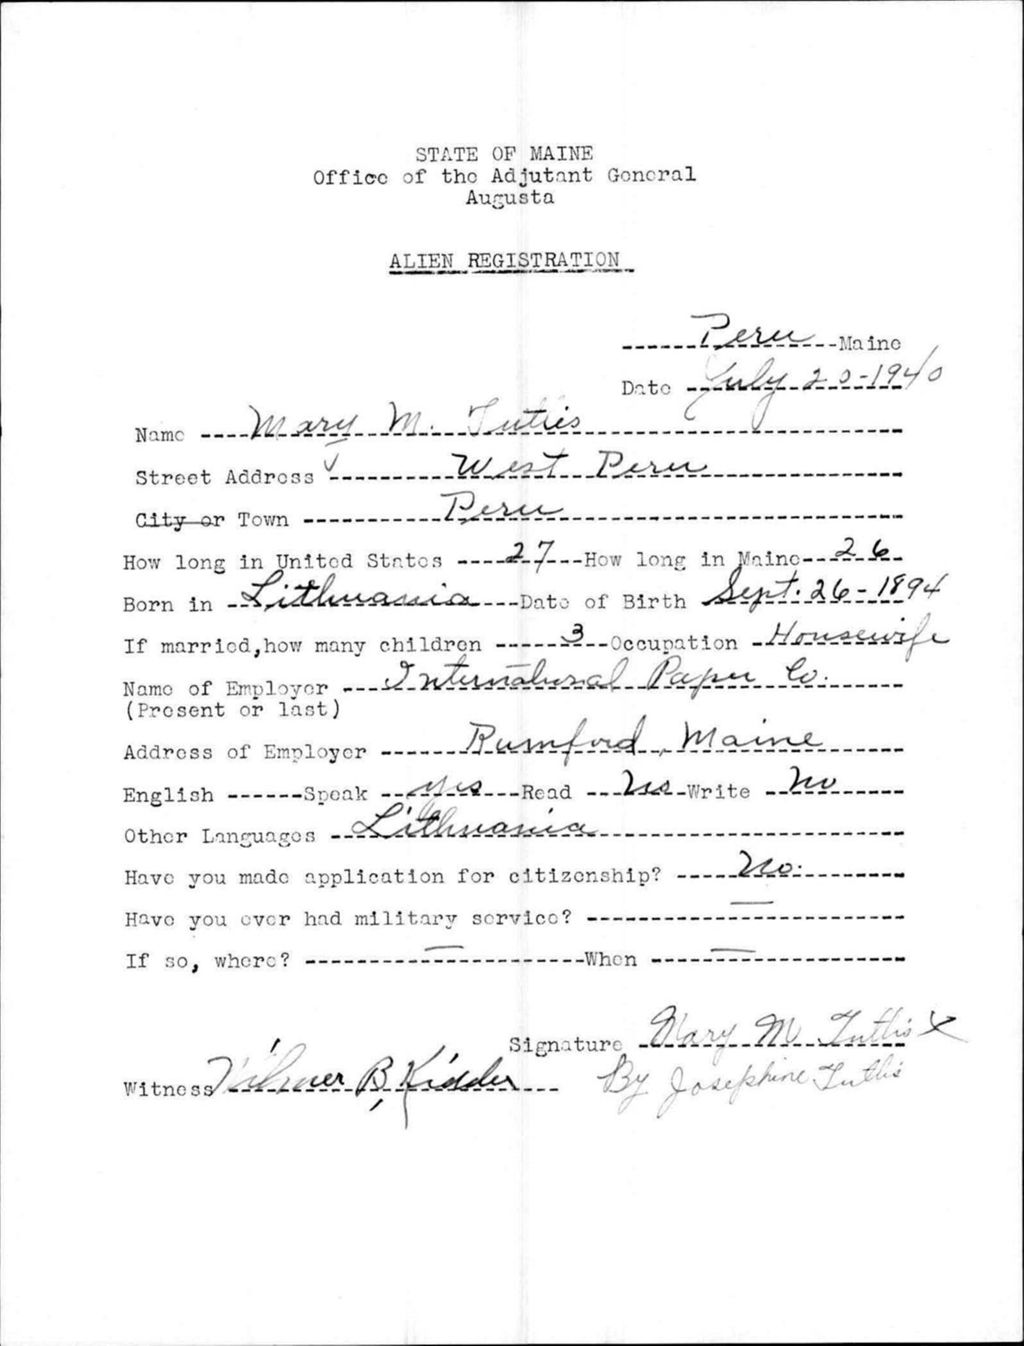 STATE OF MAINE
Office of the Adjutant General
Augusta
ALIEN REGISTRATION
Peru Maine
Date July 20-1940
Name Mary M. Tutlis
Street Address West Peru
City or Town Peru
How long in United States 27 How long in Maine 26
Born in Lithuania Date of Birth Sept. 26-1894
If married, how many children 3 Occupation Housewife
Name of Employer International Paper Co.
(Present or last)
Address of Employer Rumford, Maine
English Speak yes Read No Write No
Other Languages Lithuania
Have you made application for citizenship? No.
Have you ever had military service? —
If so, where? — When —
Signature Mary M Tutlis X
Witness Wilmer B. Kidder By Josephine Tutlis